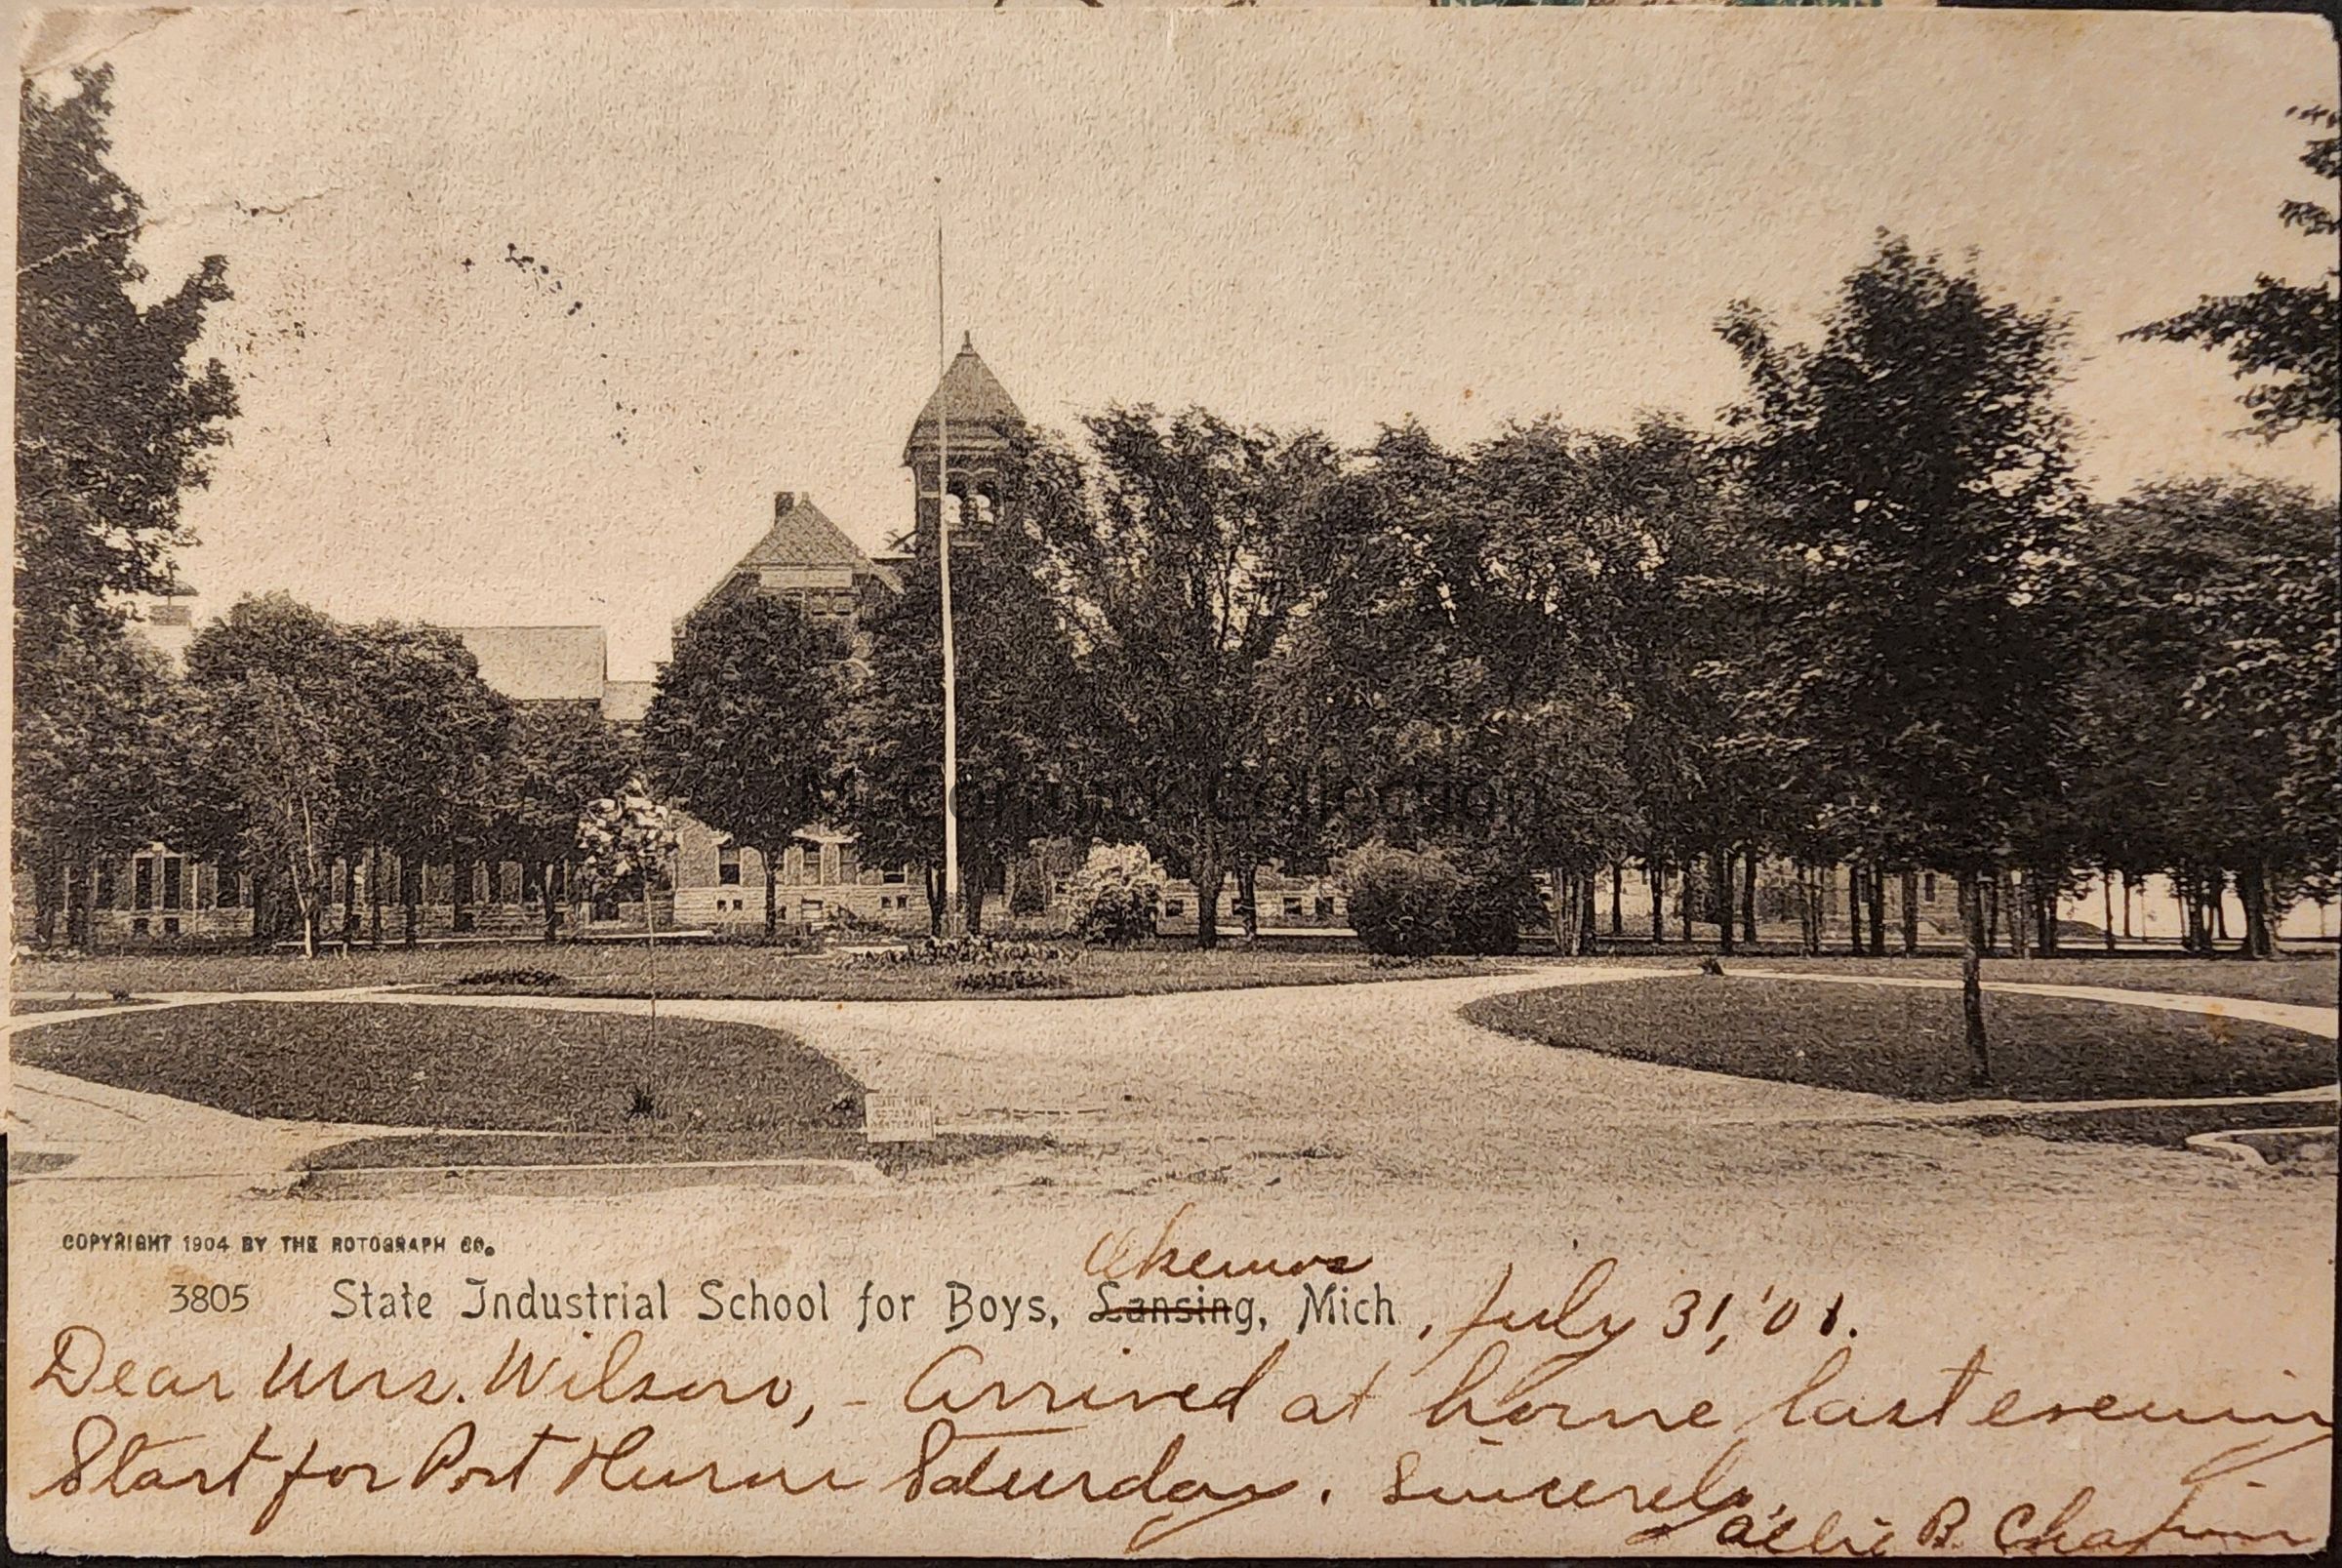 McCartney Collection
COPYRIGHT 1904 BY THE ROTOGRAPH CO.
Okemos
3805 State Industrial School for Boys, Lansing, Mich., July 31, '01.
Dear Mrs. Wilson, - Arrived at home last evening
Start for Port Huron Saturday. Sincerely,
B. Chapin